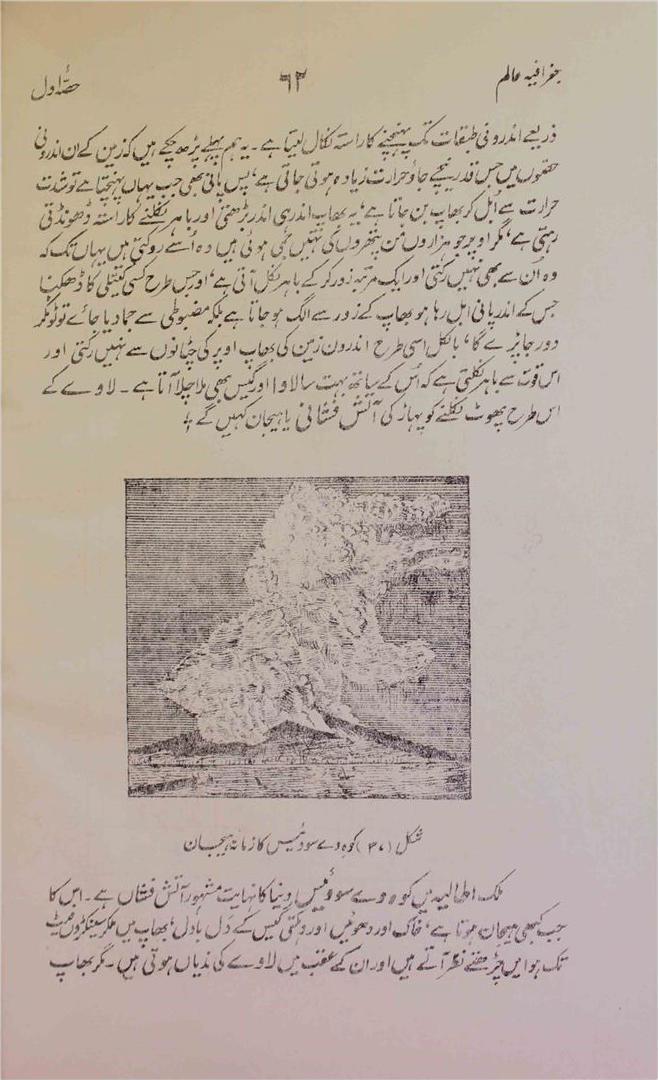 جغرافیہ عالم
۶۳
حصّہ اول
ذریعے اندرونی طبقات تک پہنچنے کا راستہ نکال لیتا ہے۔ یہ ہم پہلے پڑھ چکے ہیں کہ زمین کے ان اندرونی
حصّوں میں جس قدر نیچے جاؤ حرارت زیادہ ہوتی جاتی ہے، پس پانی بھی جب یہاں پہنچتا ہے تو شدت
حرارت سے اُبل کر بھاپ بن جاتا ہے، یہ بھاپ اندر ہی اندر بڑھتی اور باہر نکلنے کا راستہ ڈھونڈتی
رہتی ہے، مگر اوپر جو ہزاروں من پتھروں کی تہیں جمی ہوئی ہیں وہ اُسے روکتی ہیں یہاں تک کہ
وہ اُن سے بھی نہیں رکتی اور ایک مرتبہ زور کر کے باہر نکل آتی ہے، اور جس طرح کسی کیتلی کا ڈھکنا
جس کے اندر پانی ابل رہا ہو بھاپ کے زور سے الگ ہو جاتا ہے بلکہ مضبوطی سے جما دیا جائے تو ٹوٹکر
دور جا پڑے گا، بالکل اسی طرح اندرون زمین کی بھاپ اوپر کی چٹانوں سے نہیں رکتی اور
اس قوت سے باہر نکلتی ہے کہ اُس کے ساتھ بہت سا لاوا اور گیس بھی ملا جلا آتا ہے۔ لاوے کے
اس طرح پھوٹ نکلنے کو پہاڑ کی آتش فشانی یا ہیجان کہیں گے
شکل (۳۷) کوہ وے سووئیس کا زمانۂ ہیجان
ملک اطالیہ میں کوہ وے سووئیس دنیا کا نہایت مشہور آتش فشاں ہے۔ اس کا
جب کبھی ہیجان ہوتا ہے، خاک اور دھوئیں اور دہکتی گیس کے دَل بادل، بھاپ میں ملکر سینکڑوں فیٹ
تک ہوا میں چڑھتے نظر آتے ہیں اور ان کے عقب میں لاوے کی ندیاں ہوتی ہیں۔ مگر بھاپ